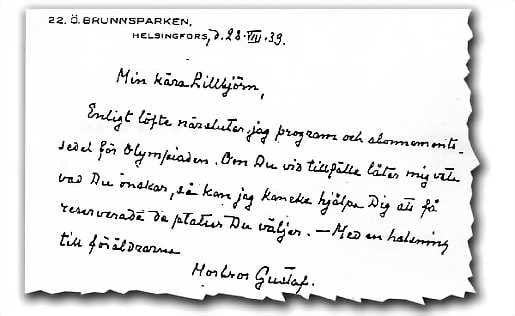 22. Ö. BRUNNSPARKEN,
HELSINGFORS, d. 28.VIII.39.
Min kära Lillbjörn,
Enligt löfte närsluter jag program och abonnements-
sedel för Olympiaden. Om Du vid tillfälle låter mig veta
vad Du önskar, så kan jag kanske hjälpa Dig att få
reserverade de platser Du väljer. — Med en halsning
till föräldrarna
Morbror Gustaf.